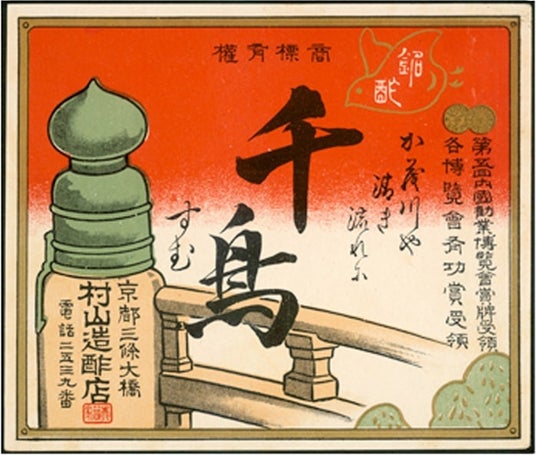 商標有權
銘酢
第五回内國勧業博覽會賞牌受領
各博覽會有功賞受領
か茂川や
清き
流れに
千鳥
すむ
京都三條大橋
村山造酢店
電話二五三九番